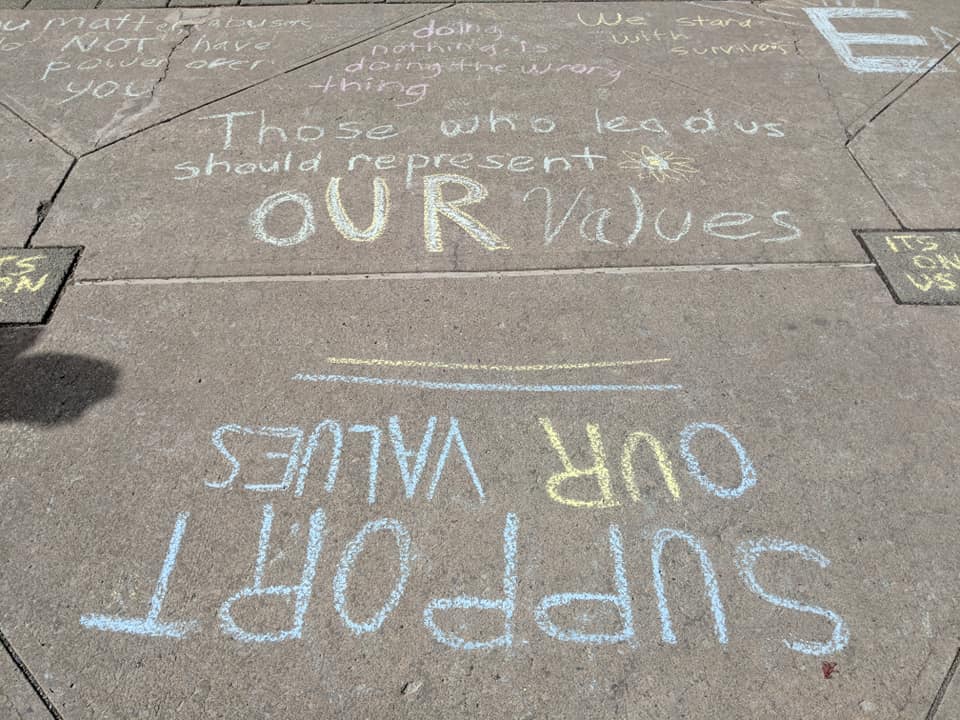 matter abusers
do NOT have
power over
you
doing
nothing is
doing the wrong
thing
We stand
with
survivors
Those who lead us
should represent
OUR Values
ITS
ON
US
SUPPORT
OUR VALUES